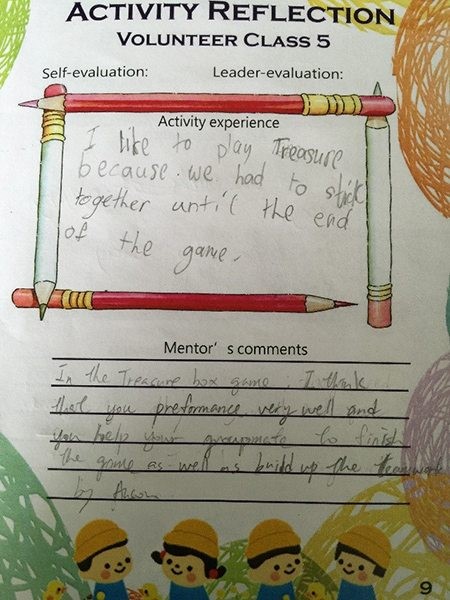 ACTIVITY REFLECTION
VOLUNTEER CLASS 5
Self-evaluation: Leader-evaluation:
Activity experience
I like to play Treasure
because we had to stick
together until the end
of the game.
Mentor's comments
In the Treasure box game, I think
that you preformance very well and
you help your groupmate to finish
the game as well as build up the teamwork
by
9